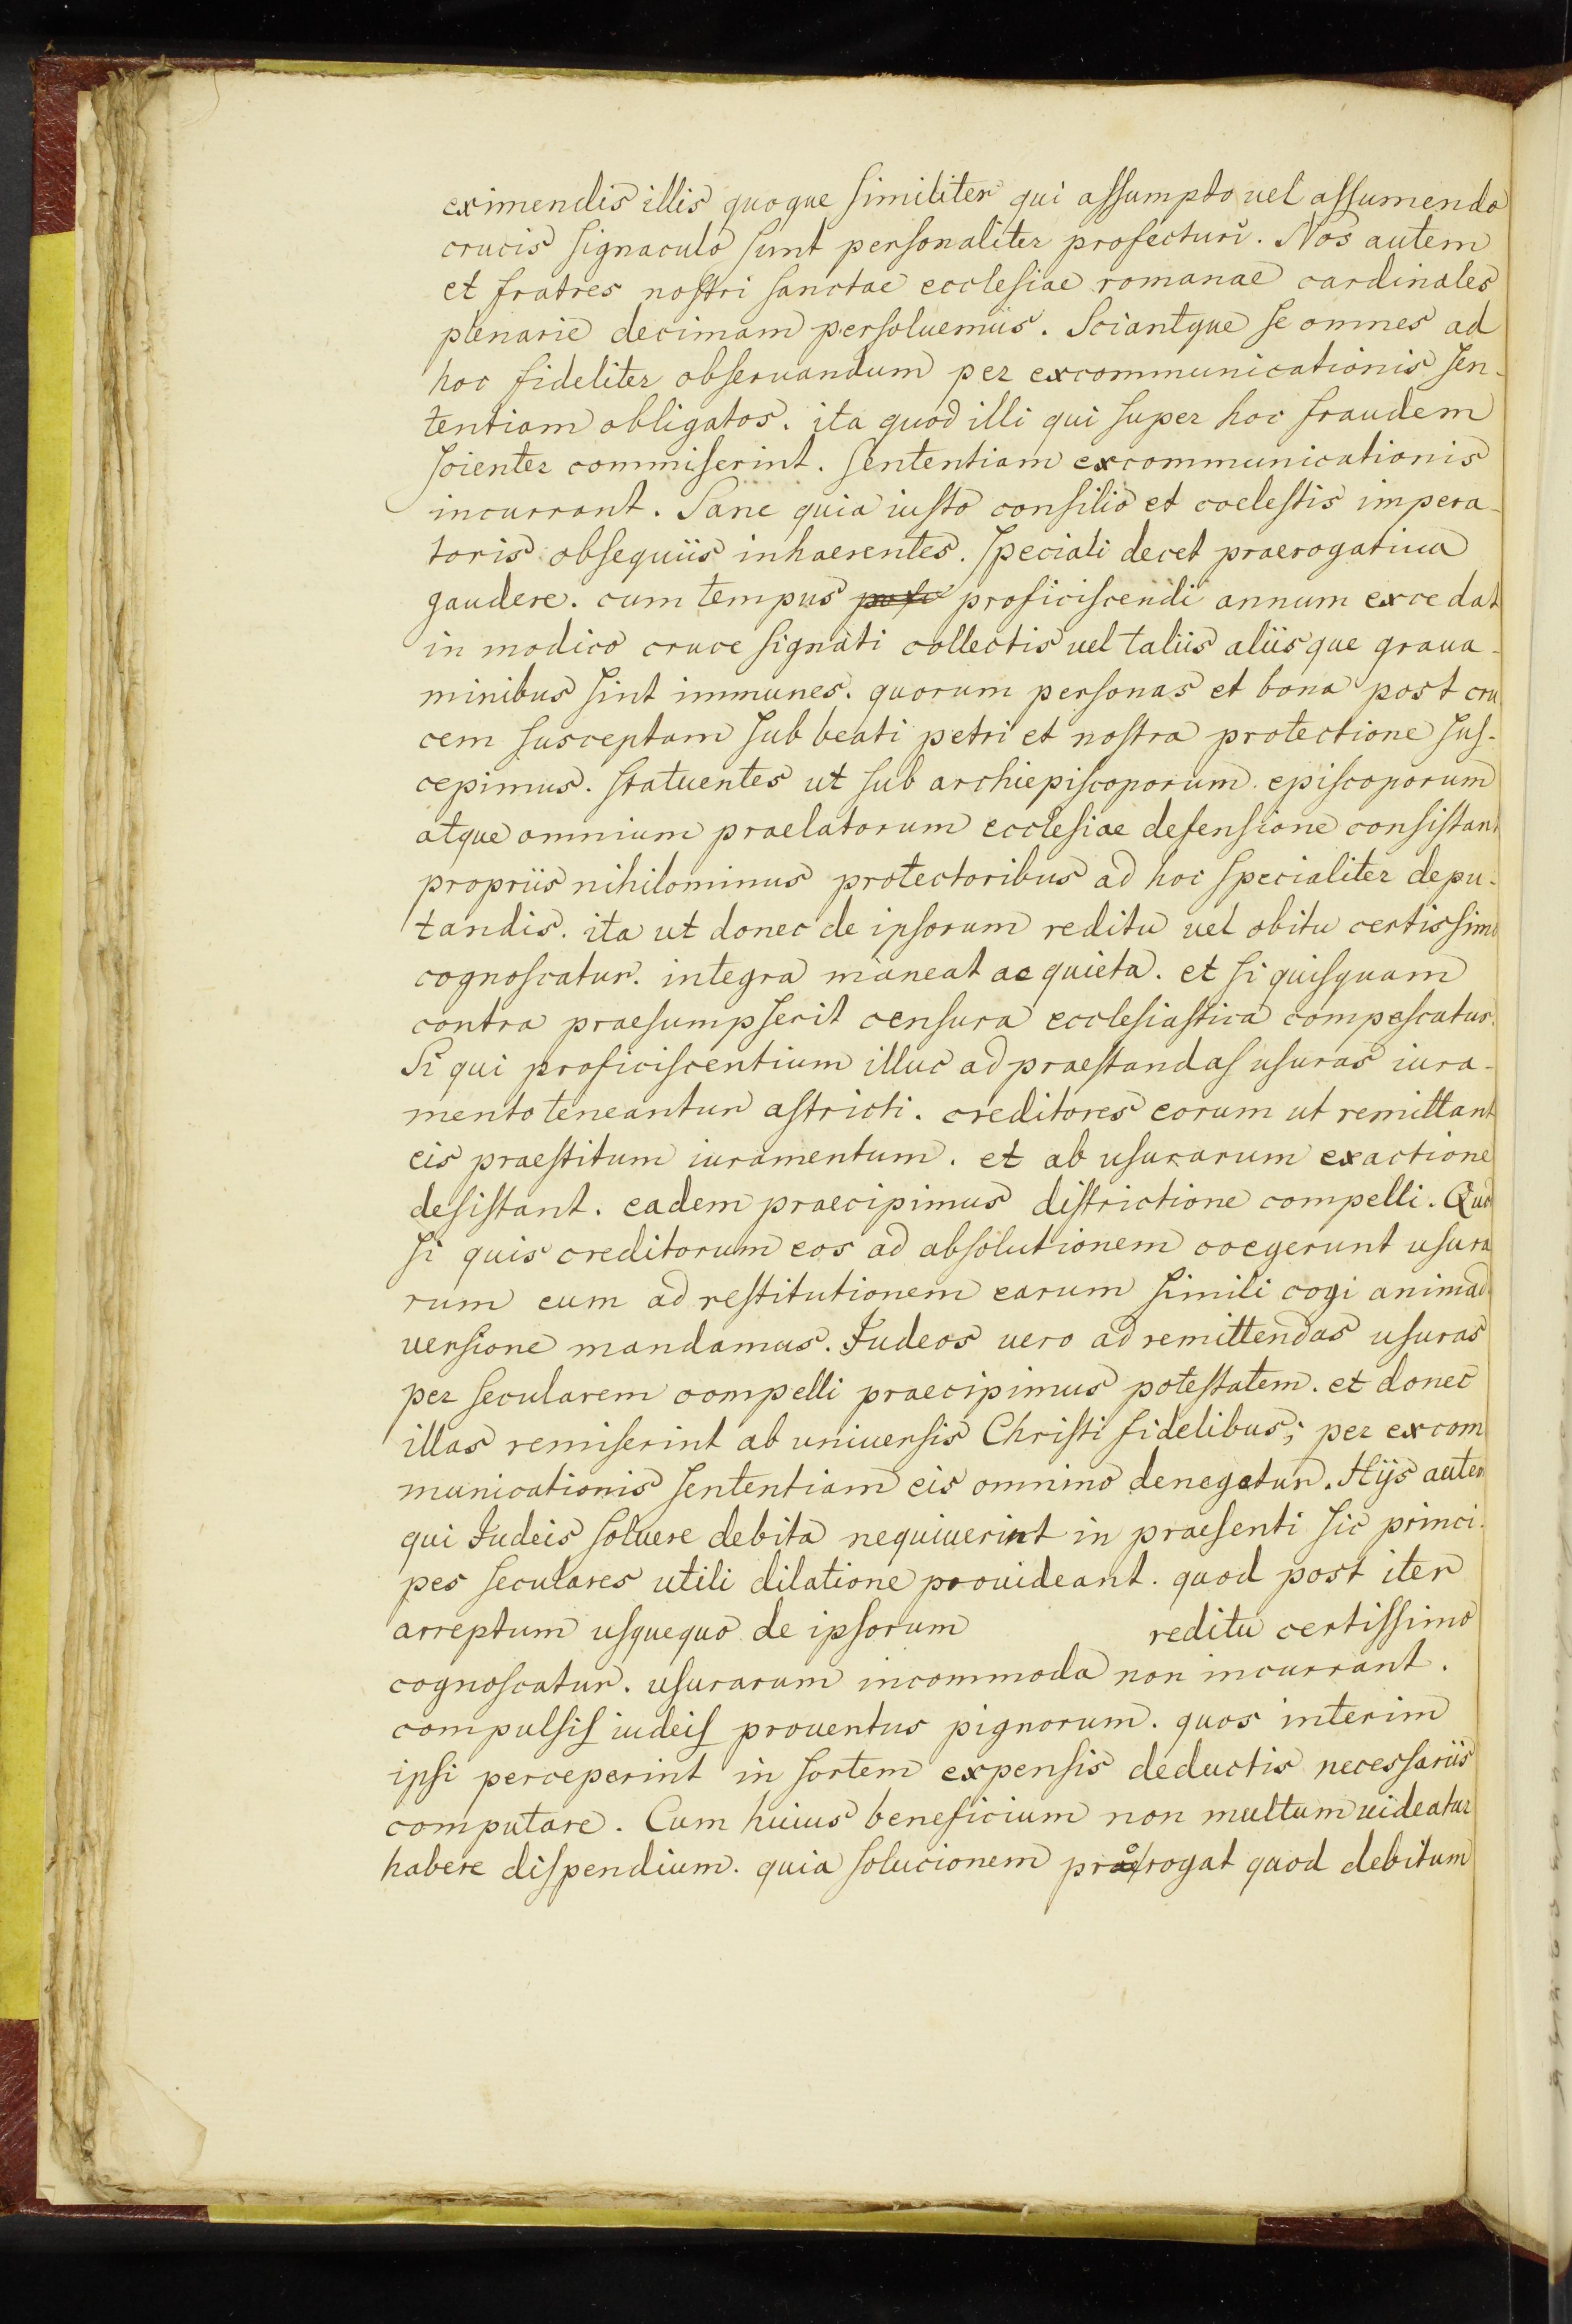 eximendis illis quoque similiter qui assumpto uel assumendo
crucis signaculo sunt personaliter profecturi. Nos autem
et fratres nostri sanctae ecclesiae romanae cardinales
plenarie decimam persoluemus. Sciantque se omnes ad
hoc fideliter obseruandum per excommunicationis sen-
tentiam obligatos. ita quod illi qui super hoc fraudem
scienter commiserint. sententiam excommunicationis
incurrant. Sane quia iusto consilio et coelestis impera-
toris obsequiis inhaerentes. speciali decet praerogatiua
gaudere. cum tempus proficiscendi annum excedat
in modico cruce signati collectis uel taliis aliisque graua-
minibus sint immunes. quorum personas et bona post cru
cem susceptam sub beati petri et nostra protectione sus-
cepimus. statuentes ut sub archiepiscoporum. episcoporum
atque omnium praelatorum ecclesiae defensione consistant
propriis nihilominus protectoribus ad hoc specialiter depu-
tandis. ita ut donec de ipsorum reditu uel obitu certissime
cognoscatur. integra maneat ac quieta. et si quisquam
contra praesumpserit censura ecclesiastica compescatur.
Si qui proficiscentium illuc ad praestandas usuras iura-
mento teneantur astricti. creditores eorum ut remittant
eis praestitum iuramentum. et ab usurarum exactione
desistant. eadem praecipimus districtione compelli. Quod
si quis creditorum eos ad absolutionem coegerunt usura
rum eum ad restitutionem earum simili cogi animad
uersione mandamus. Judeos uero ad remittendas usuras
per secularem compelli praecipimus potestatem. et donec
illas remiserint ab uniuersis Christi fidelibus; per excom
municationis sententiam eis omnino denegatur. Hijs autem
qui Judeis soluere debita nequiuerint in praesenti sic princi-
pes seculares utili dilatione prouideant. quod post iter
arreptum usquequo de ipsorum reditu certissimo
cognoscatur. usurarum incommoda non incurrant.
compulsis iudeis prouentus pignorum. quos interim
ipsi perceperint in sortem expensis deductis necessariis
computare. Cum huius beneficium non multum uideatur
habere dispendium. quia solucionem prorogat quod debitum